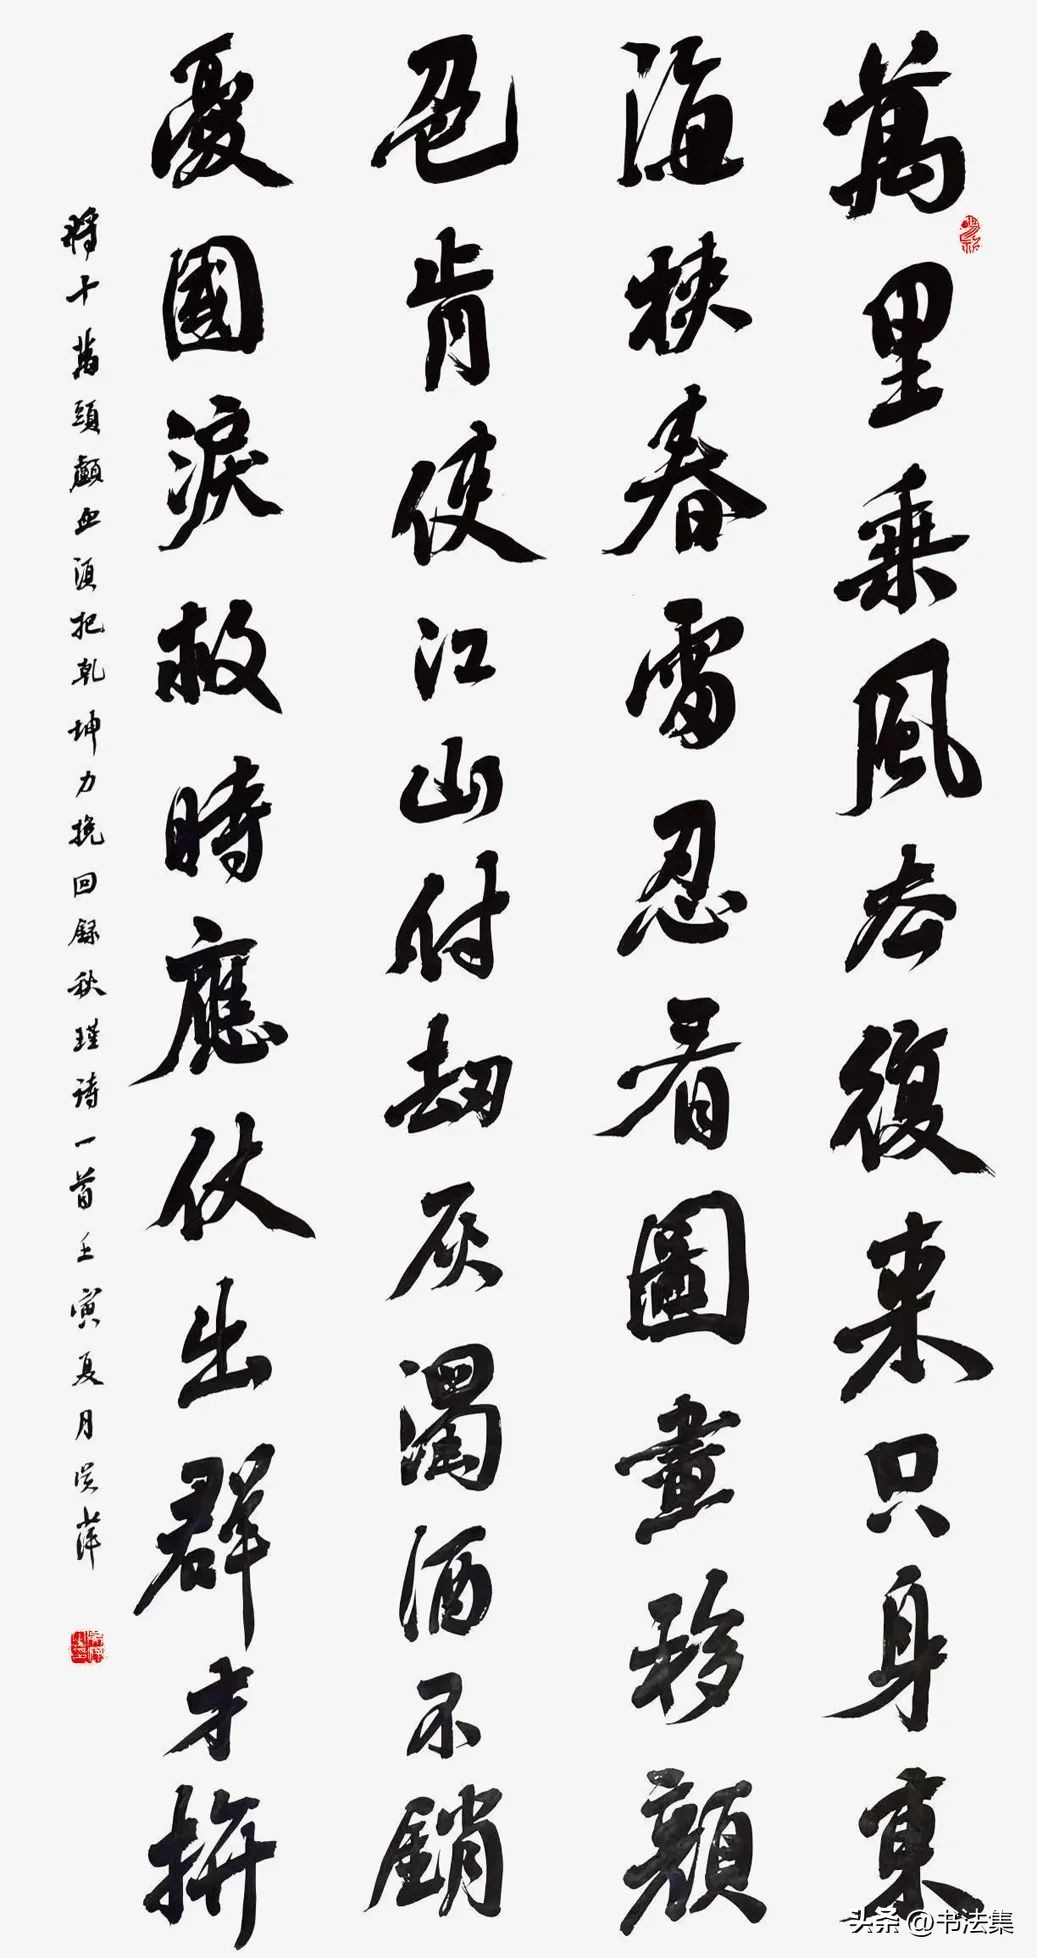 萬里乘風去復來只身東
海挾春雷忍看圖畫移顏
色肯使江山付劫灰濁酒不銷
憂國淚救時應仗出群才拚
將十萬頭顱血須把乾坤力挽回錄秋瑾詩一首壬寅夏月吴萍
头条 @书法集